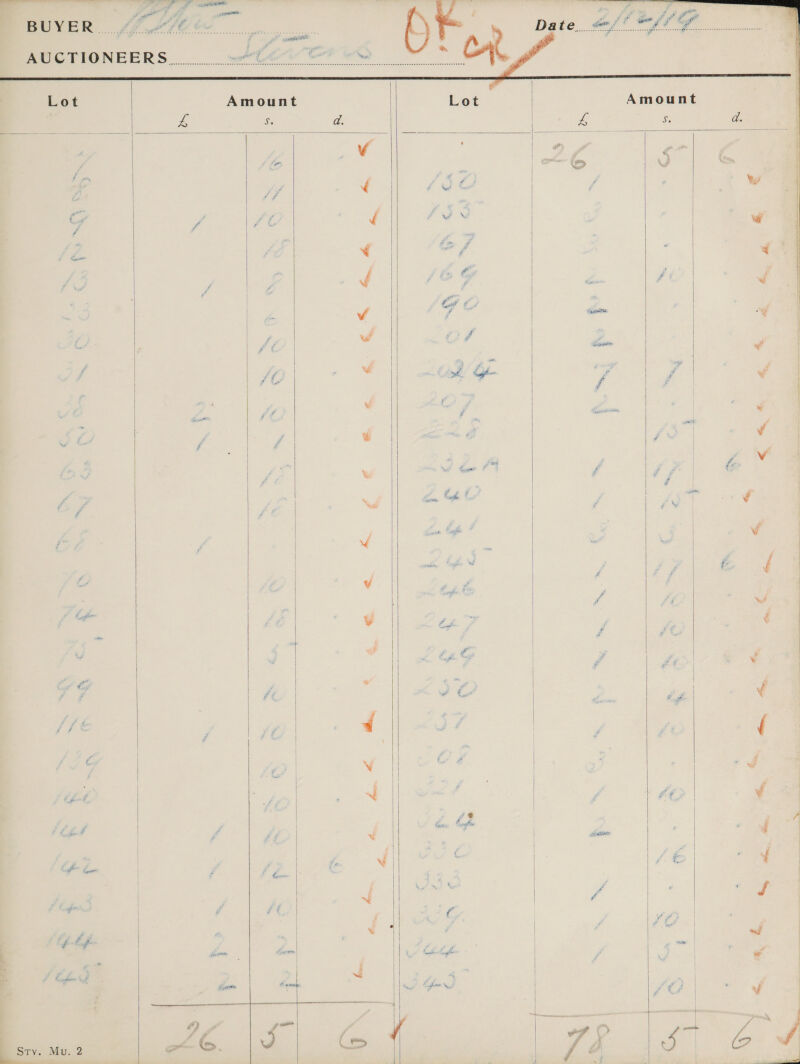 BUYER Date 2/12/19
OK CR
AUCTIONEERS Stevens
Lot Amount Lot Amount
£ s. d. £ s. d.
7 16 .
8 11 .
9 1 10 .
12 18 .
13 1 8 .
23 6
30 10 .
31 10 .
38 2 10 .
50 1 1 .
63 18 .
67 18 .
68 1 . .
70 10 .
74 18 .
75 5 .
99 10 .
116 1 10 .
139 10 .
140 10 .
141 1 10 .
142 1 12 6
143 1 10 .
144 2 2 .
145 2 2 .
26 5 6
26 5 6
150 1 . .
155 3 . .
167 3 . .
169 2 10 .
190 2 . .
201 2
7 7 .
207 2 . .
228 15 .
232A 1 17 6
240 1 15 .
241 3 3 .
245 1 17 6
246 1 10 .
247 1 10 .
249 1 10 .
250 2 4 .
257 1 10 .
308 3 . .
321 1 10 .
324 2 . .
330 16 .
333 1 . .
339 1 10 .
344 1 5 .
345 10 .
78 5 6
STY. MU. 2